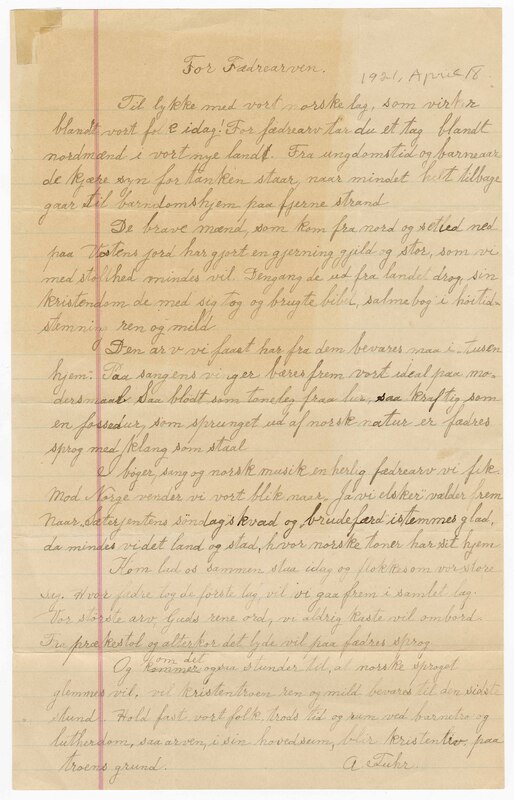 For Fædrearven.
1921, April 18.
Til lykke med vort norske lag, som virker
blandt vort folk idag! For fædrearv tar du et tag blandt
nordmænd i vort nye land. Fra ungdomstid og barneaar
de kjære syn for tanken staar, naar mindet helt tilbage
gaar til barndomshjem paa fjerne strand.
De brave mænd, som kom fra nord og setled ned
paa Vestens jord har gjort en gjerning gjild og stor, som vi
med stolthed mindes vil. Dengang de ud fra landet drog sin
kristendom de med sig tog og brugte bibel, salmebog i höitid-
stemning ren og mild.
Den arv vi faaet har fra dem bevares maa i tusen
hjem. Paa sangens vinger bæres frem vort ideal paa mo-
dersmaal. Saa blödt som toneleg fraa lur, saa kraftig som
en fossedur, som sprunget ud af norsk natur er fædres
sprog med klang som staal
I böger, sang og norsk musik en herlig fædrearv vi fik.
Mod Norge vender vi vort blik naar "Ja vi elsker" vælder frem
Naar Sæterjentens söndagskvad og brudefærd istemmes glad,
da mindes vi det land og stad, hvor norske toner har sit hjem
Kom lad os sammen staa idag og flokkes om vor store
sag. Hvor fædre lagde förste lag, vil vi gaa frem i samlet lag.
Vor störste arv, Guds rene ord, vi aldrig kaste vil ombord.
Fra prækestol og alterkor det lyde vil paa fædres sprog
Og om det
kommer ogsaa stunder til, at norske sproget
glemmes vil, vil kristentroen ren og mild bevares til den sidste
stund. Hold fast vort folk, trods tid og rum ved barnetro og
lutherdom, saa arven, i sin hovedsum, blir kristentro paa
troens grund.
A Fuhr